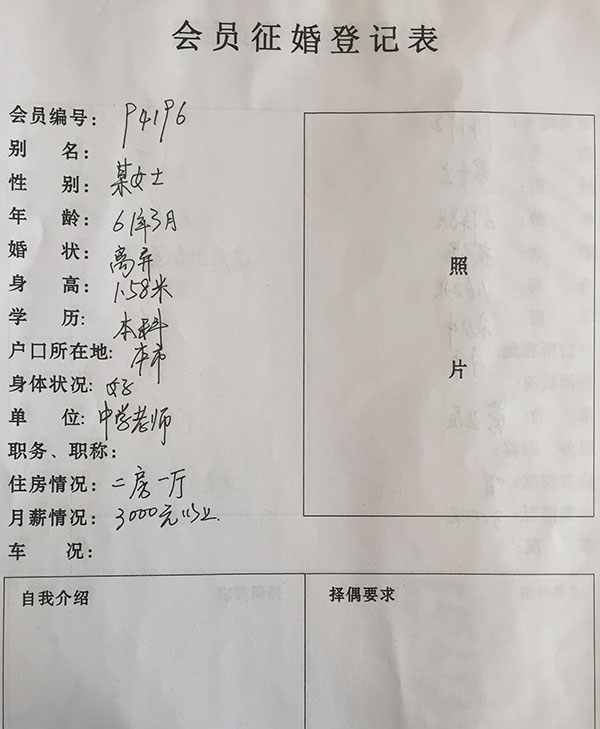 会员征婚登记表
会员编号: P41P6
别 名:
性 别: 某女士
年 龄: 61年3月
婚 状: 离异
身 高: 1.58米
学 历: 本科
户口所在地: 本市
身体状况: 好
单 位: 中学老师
职务、职称:
住房情况: 二房一厅
月薪情况: 3000元以上
车 况:
照
片
自我介绍
择偶要求